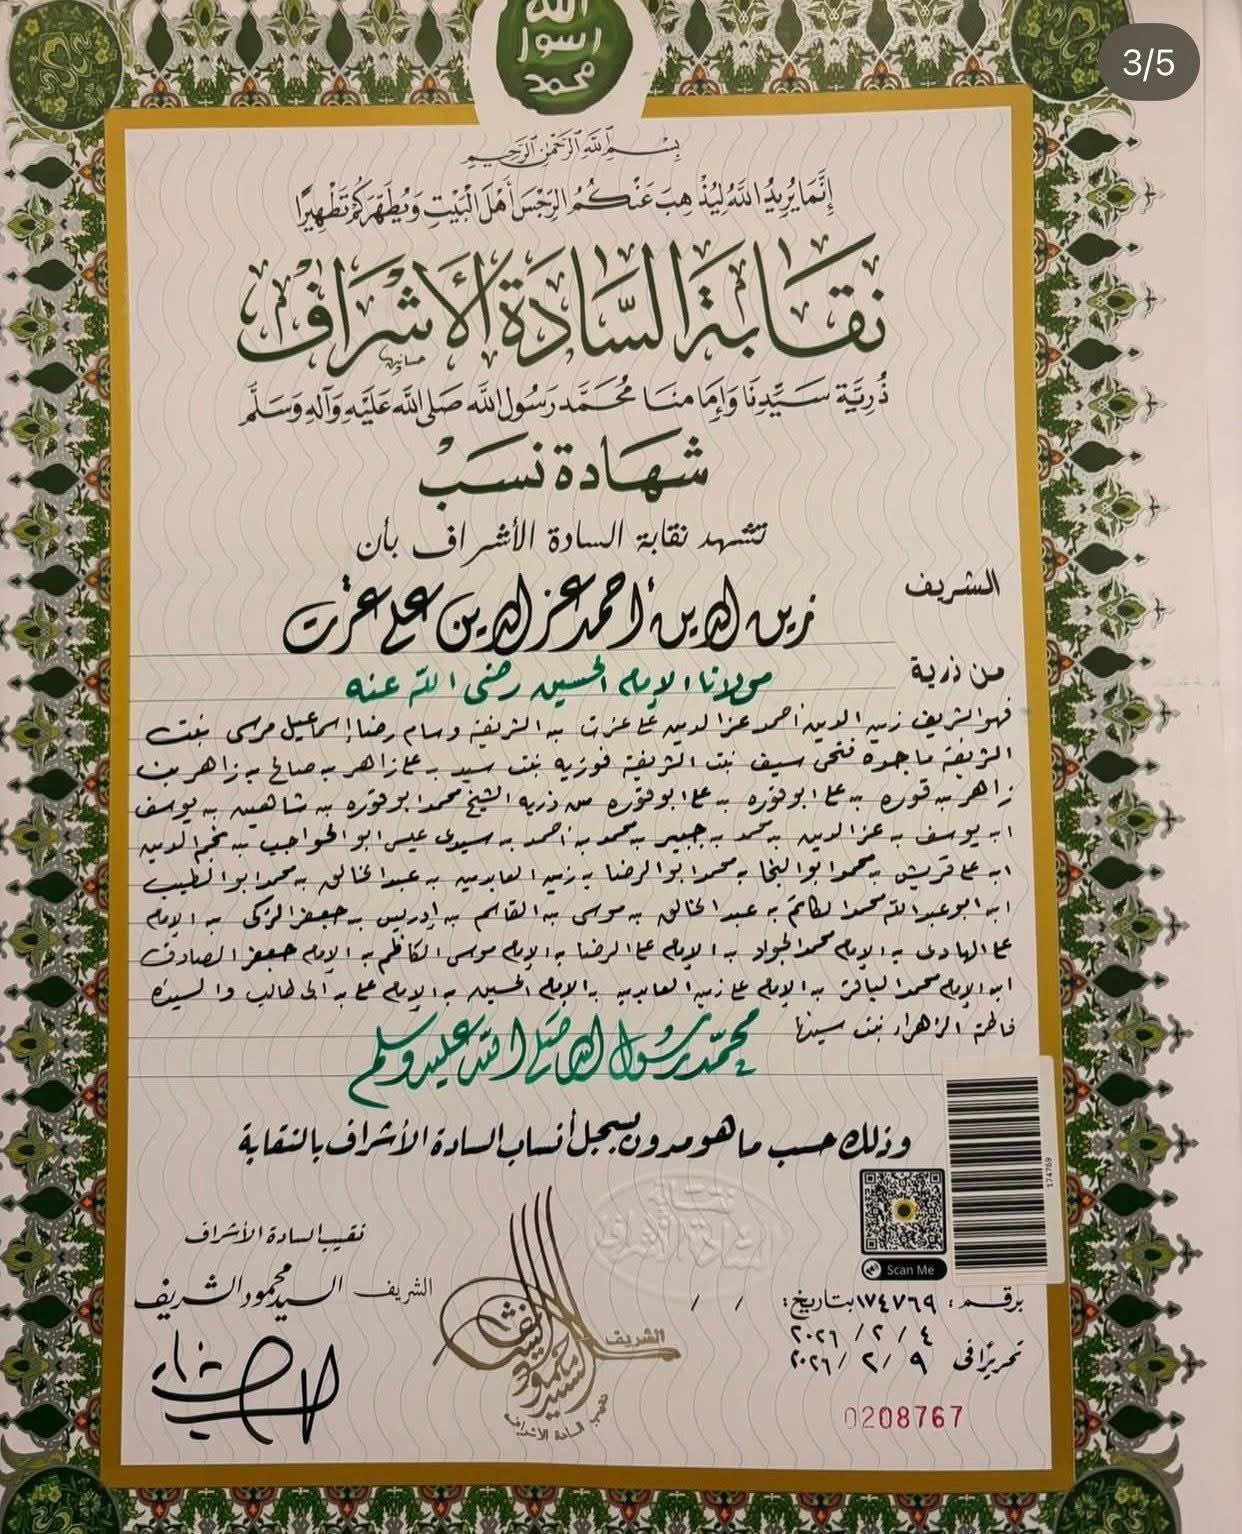 3/5
الله
رسول
محمد
بِسْمِ اللَّهِ الرَّحْمَنِ الرَّحِيمِ
إِنَّمَا يُرِيدُ اللَّهُ لِيُذْهِبَ عَنْكُمُ الرِّجْسَ أَهْلَ الْبَيْتِ وَيُطَهِّرَكُمْ تَطْهِيرًا
نقابة السادة الأشراف
ذرية سيدنا وإمامنا محمد رسول الله صلى الله عليه وآله وسلم
شهادة نسب
تشهد نقابة السادة الأشراف بأن
الشريف زين الدين أحمد عز الدين على عزت
من ذرية مولانا الإمام الحسين رضى الله عنه
فهو الشريف زين الدين أحمد عز الدين على عزت به الشريفة وسام رضا إسماعيل مرسى بنت
الشريفة ماجدة فتحى سيف بنت الشريفة فوزيه بنت سيد بن على زاهر بن صالح بن زاهر بن
زاهر بن قوره بن على ابو قوره بن على ابو قوره من ذريه الشيخ محمد ابو قوره بن شاهين بن يوسف
ابن يوسف بن عز الدين بن محمد بن جبير بن محمد بن أحمد بن سيدى عيسى ابو الحواجب بن نجم الدين
ابن على قريش بن محمد ابو النجا بن محمد ابو الرضا بن زين العابدين بن عبد الخالق بن محمد ابو الطيب
ابن ابو عبد الله محمد الكاتم بن عبد الخالق بن موسى بن القاسم بن إدريس بن جعفر الزكى بن الإمام
على الهادى بن الإمام محمد الجواد بن الإمام على الرضا بن الإمام موسى الكاظم بن الإمام جعفر الصادق
ابن الإمام محمد الباقر بن الإمام على زين العابدين بن الإمام الحسين بن الإمام على بن ابى طالب والسيدة
فاطمة الزهراء بنت سيدنا محمد رسول الله صلى الله عليه وسلم
وذلك حسب ما هو مدون بسجل أنساب السادة الأشراف بالنقابة
نقيب السادة الأشراف
الشريف السيد محمود الشريف
نقابة
السادة الأشراف
الشريف
السيد محمود الشريف
نقيب السادة الأشراف
174769
Scan Me
برقم: ١٧٤٧٦٩ بتاريخ: / /
٤ / ٢ / ٢٠٢٦
تحريرًا فى ٩ / ٢ / ٢٠٢٦
0208767